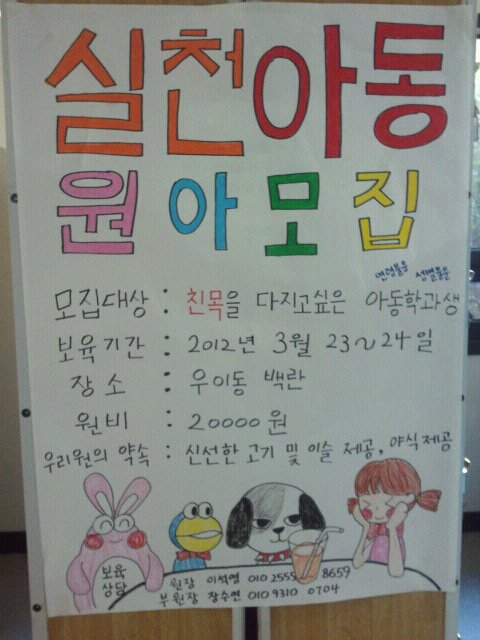 실천아동
원아모집
연령불문 성별불문
모집대상 : 친목을 다지고싶은 아동학과생
보육기간 : 2012년 3월 23~24일
장소 : 우이동 백란
원비 : 20000원
우리원의 약속 : 신선한 고기 및 이슬 제공, 야식제공
보육
상담
원장 이석영 010 2555 8659
부원장 장수연 010 9310 0704